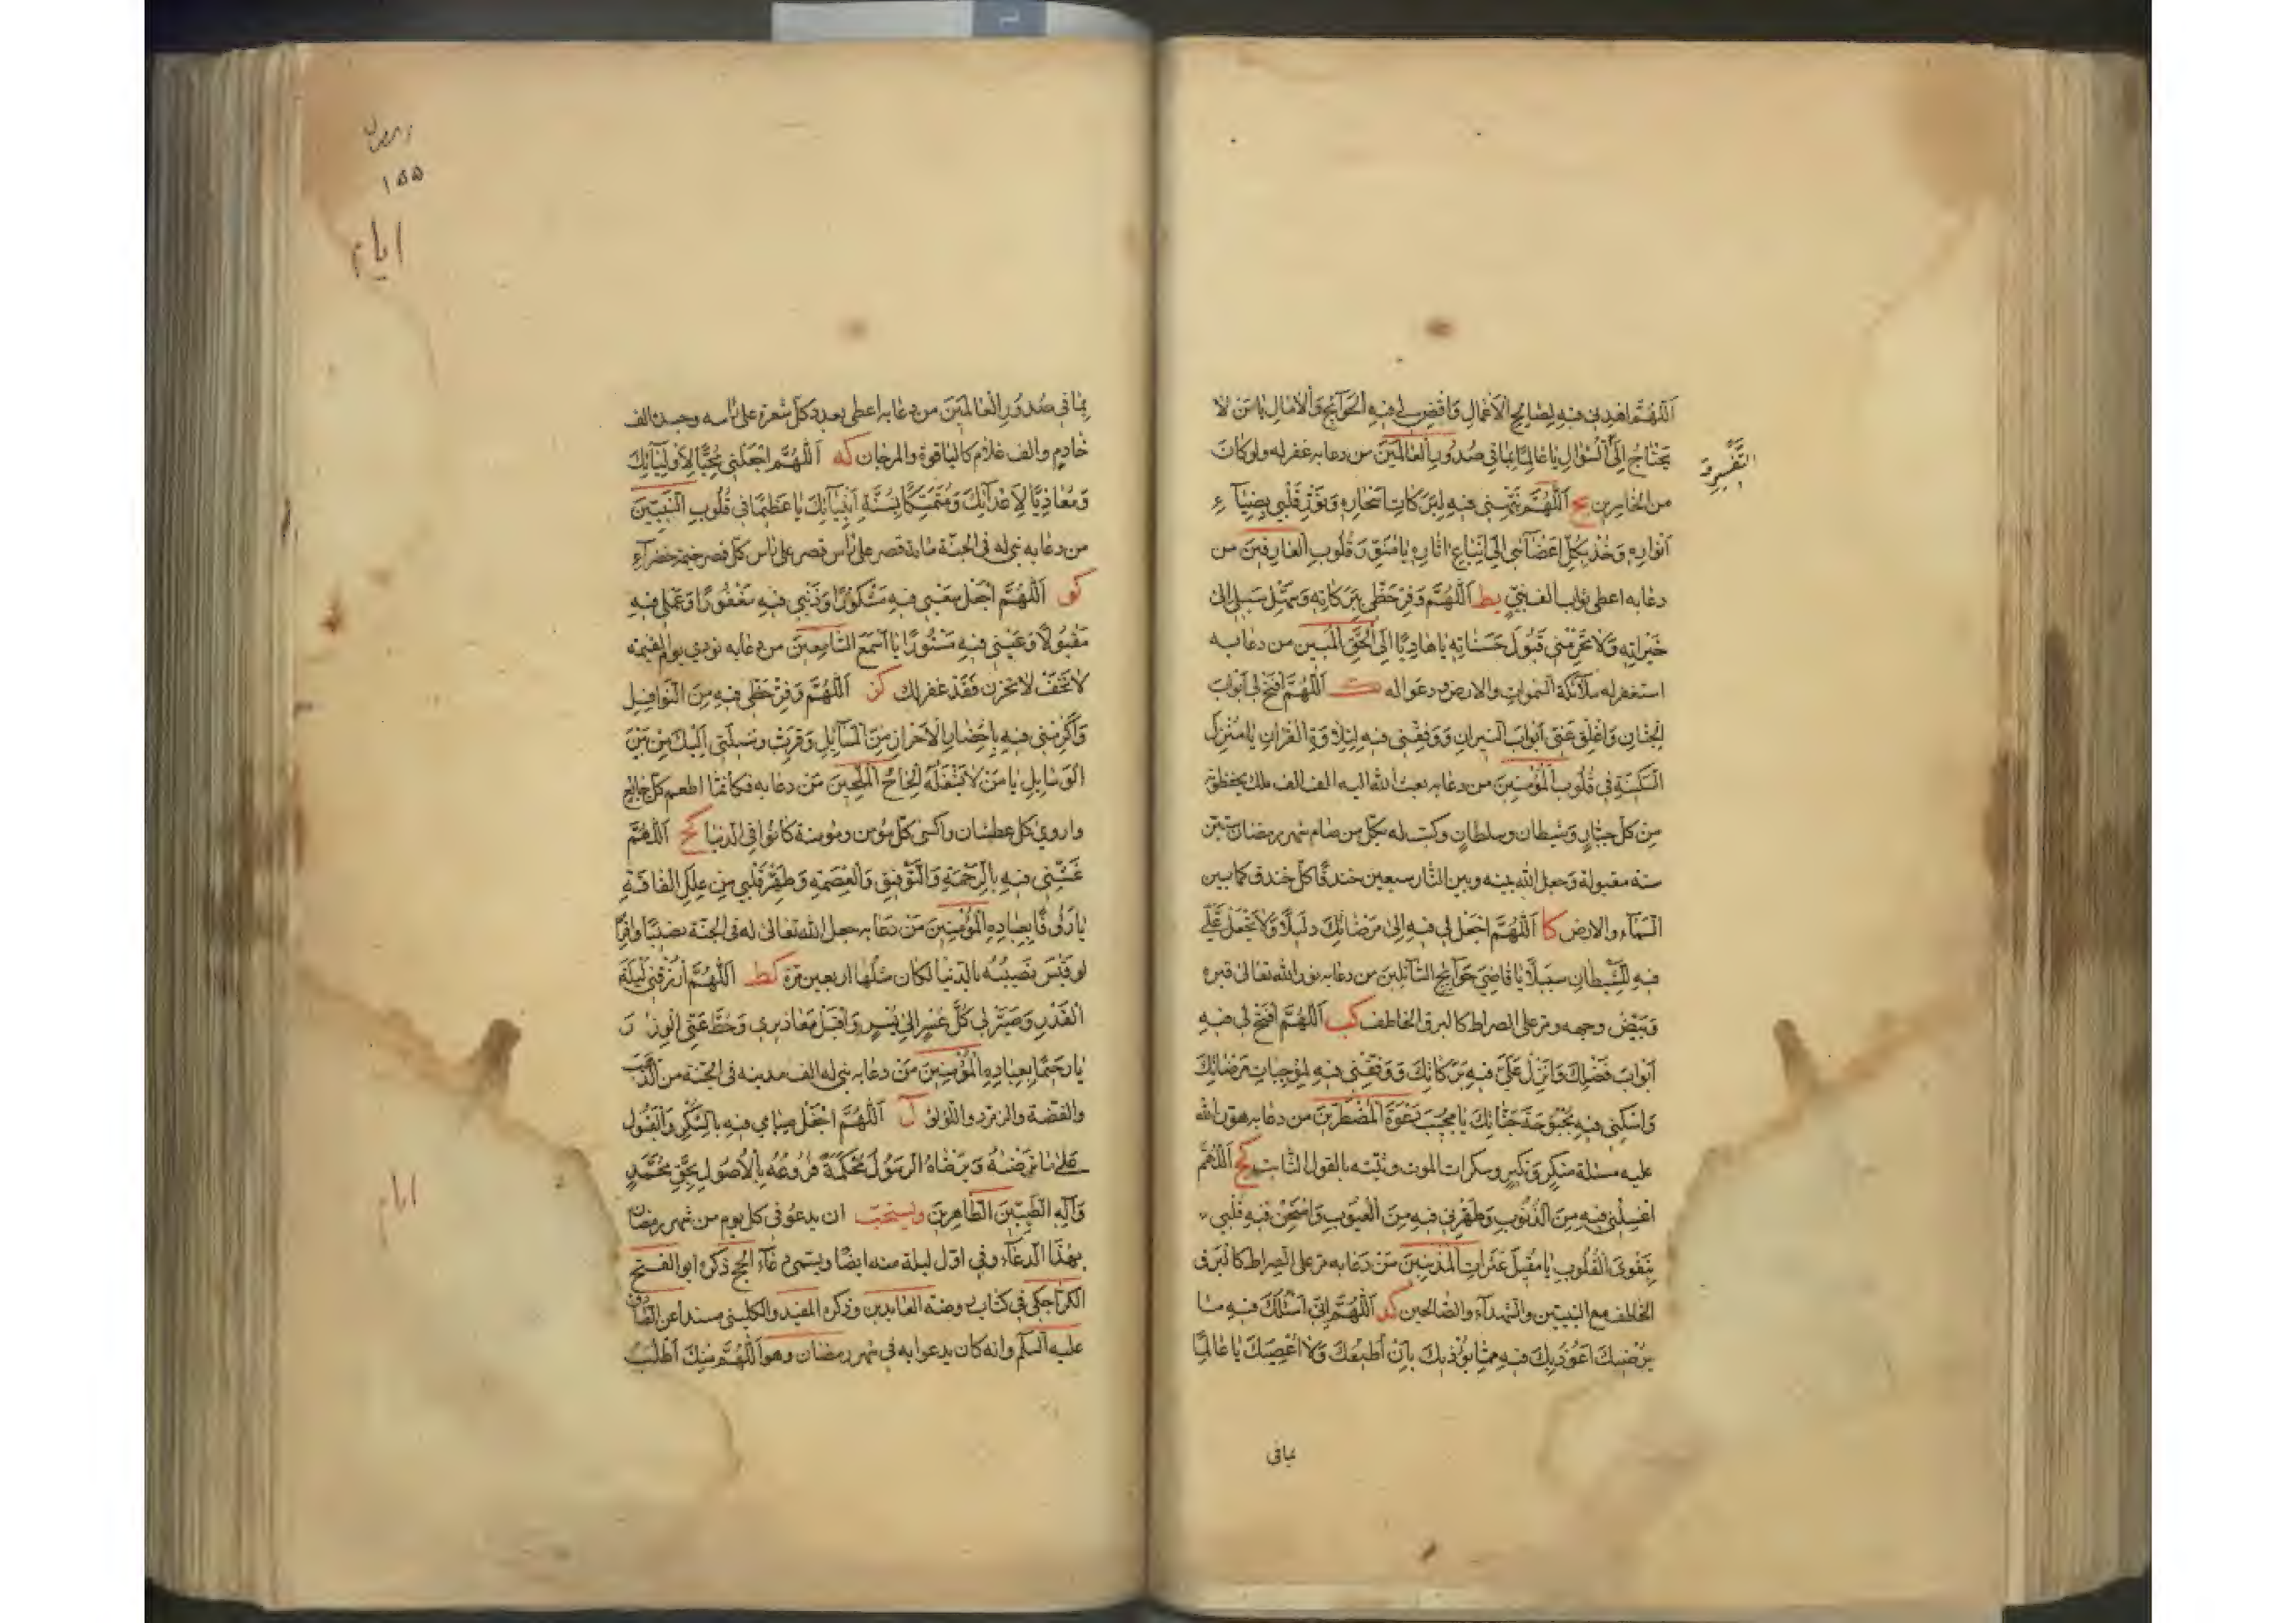 اَللّهُمَّ اهْدِنى فيهِ لِصالِحِ الْاَعْمالِ وَاقْضِ لى فيهِ الْحَوآئِجَ وَالْامالَ يا مَنْ لا
التَّفْسيرِ وَ
يَحْتاجُ اِلَى السُّؤالِ يا عالِمًا بِما فى صُدُورِ الْعالَمينَ من دعا به غفر له ولو كان
من الخاسرين يح اَللّهُمَّ نَبِّهْنى فيهِ لِبَرَكاتِ اَسْحارِهِ وَنَوِّرْ قَلْبى بِضِيآءِ
اَنْوارِهِ وَخُذْ بِكُلِّ اَعْضآئى اِلَى اتِّباعِ اثارِهِ يا مُنَوِّرَ قُلُوبِ الْعارِفينَ من
دعا به اعطى ثواب الف نبىّ يط اَللّهُمَّ وَفِّرْ حَظّى بِبَرَكاتِهِ وَسَهِّلْ سَبيلى اِلى
خَيْراتِهِ وَلا تَحْرِمْنى قَبُولَ حَسَناتِهِ يا هادِيًا اِلَى الْحَقِّ الْمُبينِ من دعا به
استغفر له ملآئكة السموات والارض ودعوا له ك اَللّهُمَّ افْتَحْ لى اَبْوابَ
الْجِنانِ وَاَغْلِقْ عَنّى اَبْوابَ النّيرانِ وَوَفِّقْنى فيهِ لِتِلاوَةِ الْقُرانِ يا مُنْزِلَ
السَّكينَةِ فى قُلُوبِ الْمُؤْمِنينَ من دعا به بعث الله اليه الف الف ملك يحفظونه
من كل جبّار وشيطان وسلطان وكتب له بكل من صام شهر رمضان ستين
سنة مقبولة وجعل الله بينه وبين النّار سبعين خندقًا كل خندق كما بين
السّمآء والارض كا اَللّهُمَّ اجْعَلْ لى فيهِ اِلى مَرْضاتِكَ دَليلًا وَلا تَجْعَلْ عَلَىَّ
فيهِ لِلشَّيْطانِ سَبيلًا يا قاضِىَ حَوآئِجِ السّآئِلينَ من دعا به نور الله تعالى قبره
وبيّض وجهه ومر على الصراط كالبرق الخاطف كب اَللّهُمَّ افْتَحْ لى فيهِ
اَبْوابَ فَضْلِكَ وَاَنْزِلْ عَلَىَّ فيهِ بَرَكاتِكَ وَوَفِّقْنى فيهِ لِمُوجِباتِ مَرْضاتِكَ
وَاَسْكِنّى فيهِ بُحْبُوحَةَ جَنّاتِكَ يا مُجيبَ دَعْوَةِ الْمُضْطَرّينَ من دعا به هوّن الله
عليه مسئلة منكر ونكير وسكرات الموت وثبّته بالقول الثابت كج اَللّهُمَّ
اغْسِلْنى فيهِ مِنَ الذُّنُوبِ وَطَهِّرْنى فيهِ مِنَ الْعُيُوبِ وَامْتَحِنْ فيهِ قَلْبى
بِتَقْوَى الْقُلُوبِ يا مُقيلَ عَثَراتِ الْمُذْنِبينَ مَن دعا به مر على الصراط كالبرق
الخاطف مع النبيين والشهدآء والصالحين كد اَللّهُمَّ اِنّى اَسْئَلُكَ فيهِ ما
يُرْضيكَ اَعُوذُ بِكَ فيهِ مِمّا يُؤْذيكَ بِاَنْ اُطيعَكَ وَلا اَعْصِيَكَ يا عالِمًا
بما فى
١٥٥
ايام
بِما فى صُدُورِ الْعالَمينَ من دعا به اعطى بعدد كل شعرة على راسه وجسده الف
خادم والف غلام كالياقوة والمرجان كه اَللّهُمَّ اجْعَلْنى مُحِبًّا لِاَوْلِيآئِكَ
وَمُعادِيًا لِاَعْدآئِكَ وَمُتَمَسِّكًا بِسُنَّةِ اَنْبِيآئِكَ يا عَظيمًا فى قُلُوبِ النَّبِيّينَ
من دعا به بنى له فى الجنّة ماية قصر على راس قصر على راس كل قصر خيمة خضرآء
كو اَللّهُمَّ اجْعَلْ سَعْيى فيهِ مَشْكُورًا وَذَنْبى فيهِ مَغْفُورًا وَعَمَلى فيهِ
مَقْبُولًا وَعَيْبى فيهِ مَسْتُورًا يا اَسْمَعَ السّامِعينَ من دعا به نودى يوم القيمة
لا تخف لا تحزن فقد غفر لك كز اَللّهُمَّ وَفِّرْ حَظّى فيهِ مِنَ النَّوافِلِ
وَاَكْرِمْنى فيهِ بِاِحْضارِ الْاَحْرازِ مِنَ الْمَسآئِلِ وَقَرِّبْ وَسيلَتى اِلَيْكَ مِنْ بَيْنِ
الْوَسايِلِ يا مَنْ لا يَشْغَلُهُ اِلْحاحُ الْمُلِحّينَ مَن دعا به فكانما اطعم كل جايع
واروى كل عطشان واكسى كل مؤمن ومؤمنة كانوا فى الدنيا كح اَللّهُمَّ
غَشِّنى فيهِ بِالرَّحْمَةِ وَالتَّوْفيقِ وَالْعِصْمَةِ وَطَهِّرْ قَلْبى مِنْ عِلَلِ الْفاقَةِ
يا رَؤُفًا بِعِبادِهِ الْمُؤْمِنينَ مَن دعا به جعل الله تعالى له فى الجنة نصيبًا وافرًا
لو قيس نصيبه بالدنيا لكان مثلها اربعين مرة كط اَللّهُمَّ ارْزُقْنى لَيْلَةَ
الْقَدْرِ وَصَيِّرْ لى كُلَّ عُسْرٍ اِلى يُسْرٍ وَاقْبَلْ مَعاذيرى وَحُطَّ عَنّى الْوِزْرَ
يا رَحيمًا بِعِبادِهِ الْمُؤْمِنينَ مَن دعا به بنى له الف مدينه فى الجنّة من الذهب
والفضة والزمرد واللؤلؤ ل اَللّهُمَّ اجْعَلْ صِيامى فيهِ بِالشُّكْرِ وَالْقَبُولِ
عَلى ما تَرْضيهُ وَيَرْضاهُ الرَّسُولُ مُحْكَمَةً فُرُوعُهُ بِالْاُصُولِ بِحَقِّ مُحَمَّدٍ
وَآلِهِ الطَّيِّبينَ الطّاهِرينَ ويستحبّ ان يدعو فى كل يوم من شهر رمضان
بهذا الدعآء وفى اوّل ليلة منه ايضًا ويسمى دعآء الحج ذكره ابو الفتح
الكراجكى فى كتاب روضة العابدين وذكره المفيد والكلينى مسندا عن الصادق
عليه السلم وانه كان يدعوا به فى شهر رمضان وهو اَللّهُمَّ مِنْكَ اَطْلُبُ
ايام